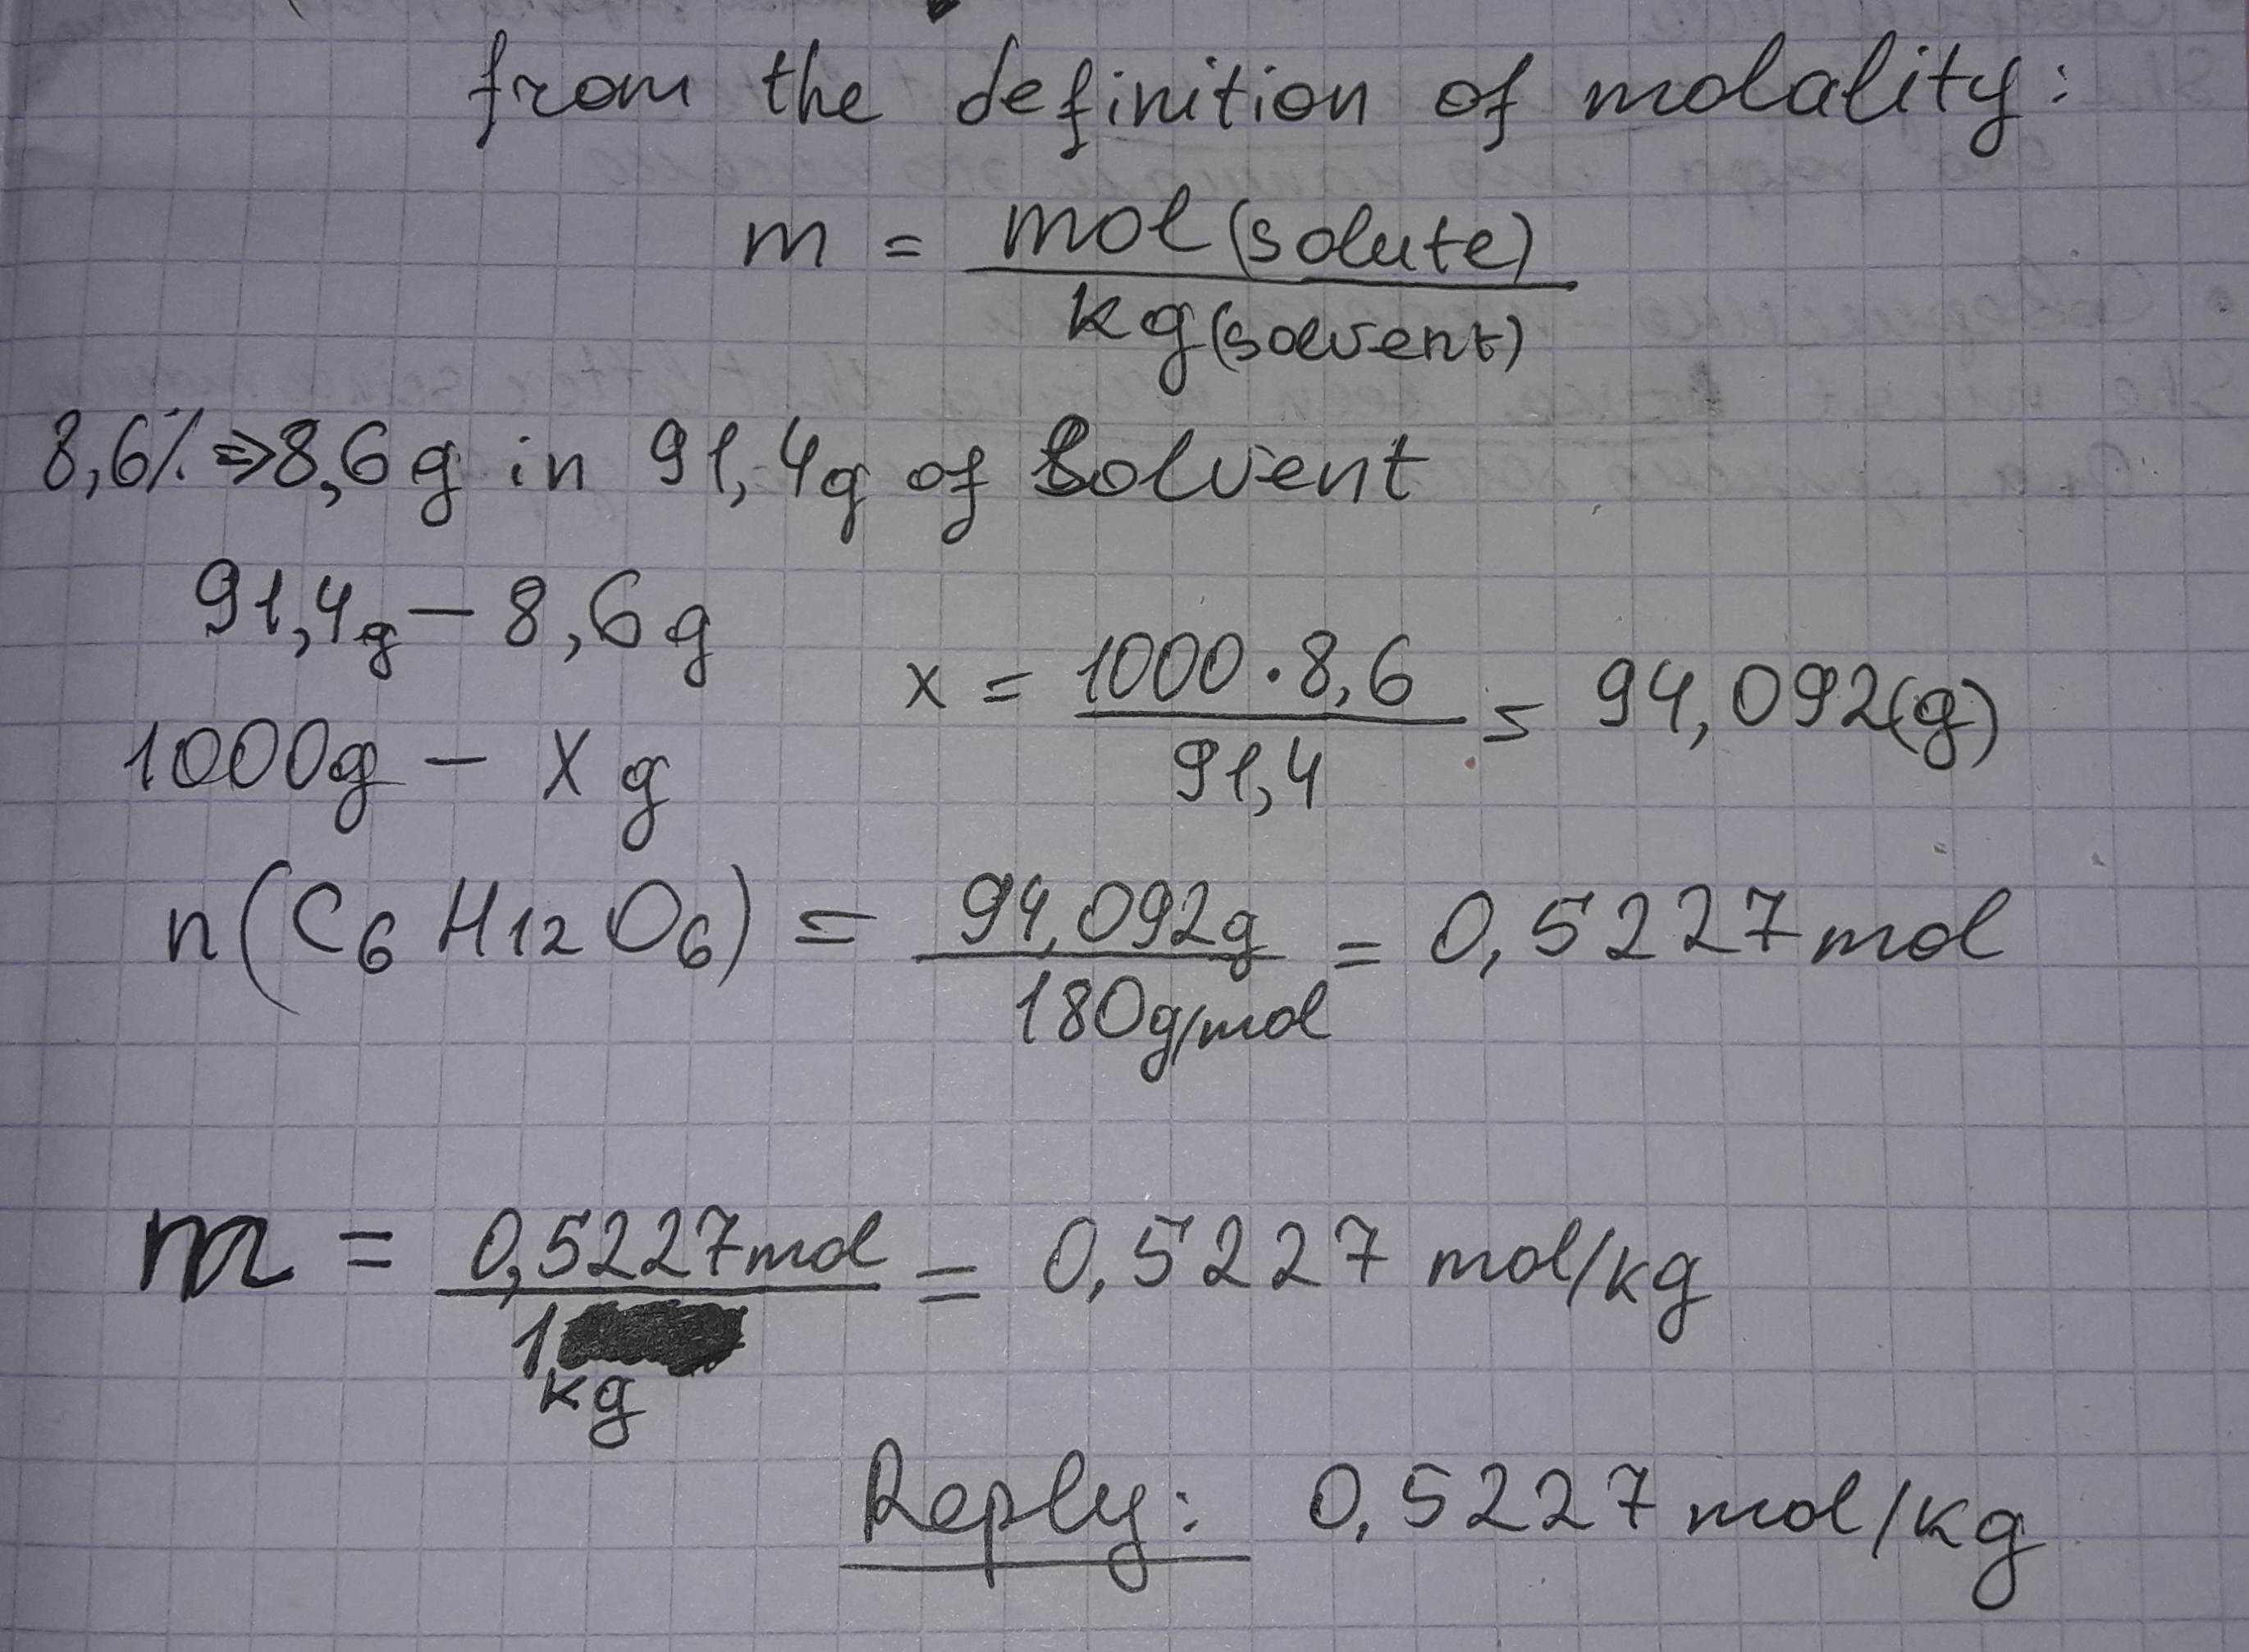 from the definition of molality:
m = mol (solute) / kg (solvent)
8,6% ⇒ 8,6 g in 91,4 g of solvent
91,4 g – 8,6 g
1000 g – x g
x = 1000 · 8,6 / 91,4 = 94,092 (g)
n(C6H12O6) = 94,092 g / 180 g/mol = 0,5227 mol
m = 0,5227 mol / 1 kg = 0,5227 mol/kg
Reply: 0,5227 mol/kg